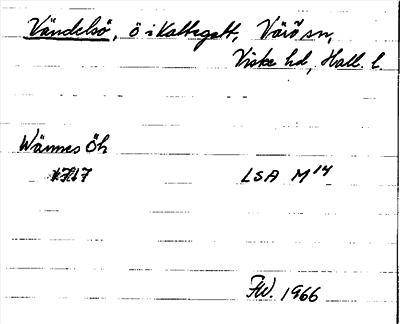 Vändelsö, ö i Kattegatt, Värö sn,
Viske hd, Hall. l.
Wännes Öh
1717 LSA M14
FW. 1966